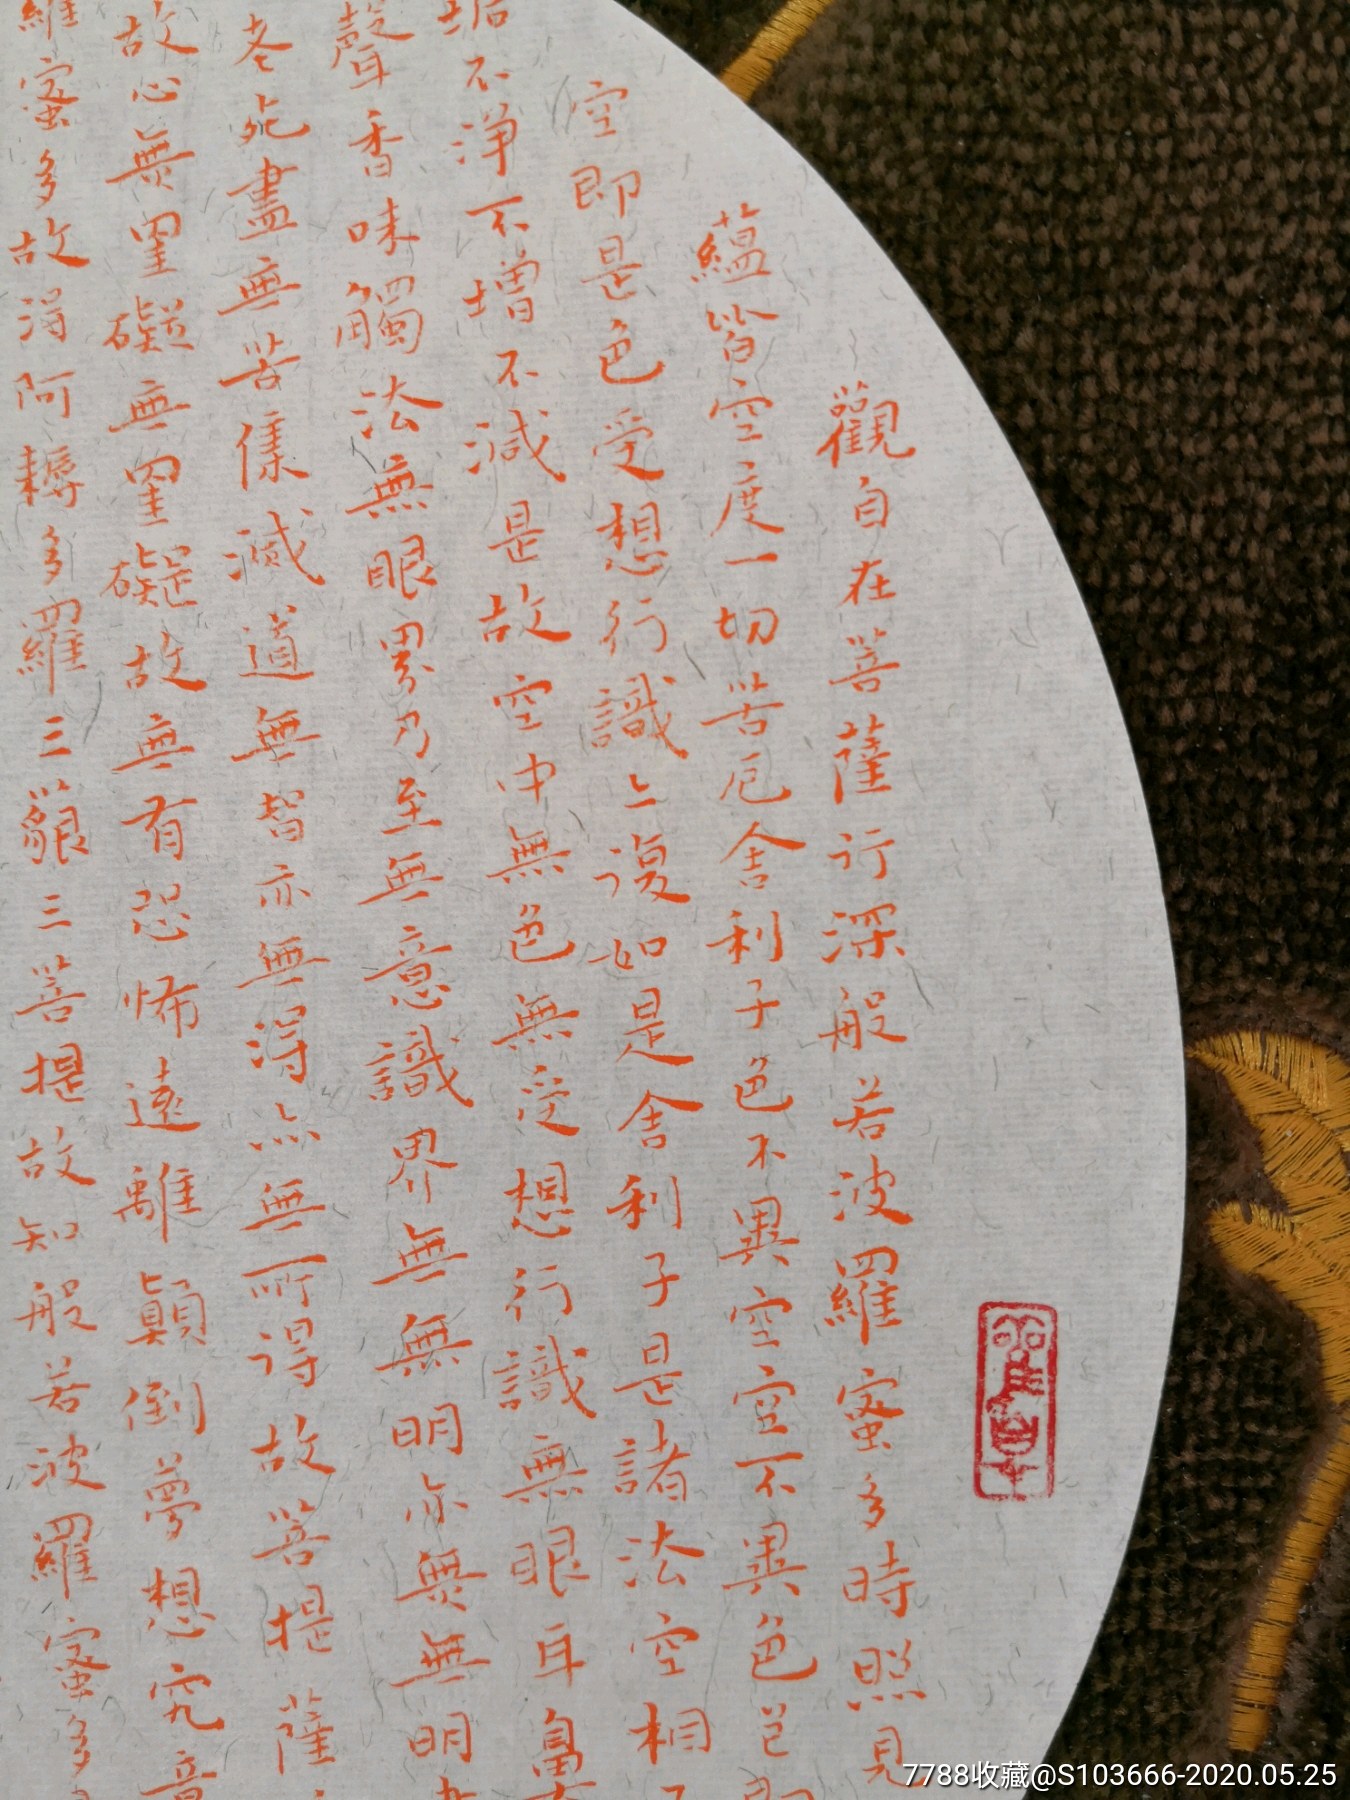 觀自在菩薩行深般若波羅蜜多時照見
蘊皆空度一切苦厄舍利子色不異空空不異色色即
空即是色受想行識亦復如是舍利子是諸法空相
垢不淨不增不減是故空中無色無受想行識無眼耳鼻
聲香味觸法無眼界乃至無意識界無無明亦無無明
老死盡無苦集滅道無智亦無得亦無所得故菩提薩
故心無罣礙無罣礙故無有恐怖遠離顛倒夢想究竟
羅蜜多故得阿耨多羅三藐三菩提故知般若波羅蜜多
7788收藏@S103666-2020.05.25